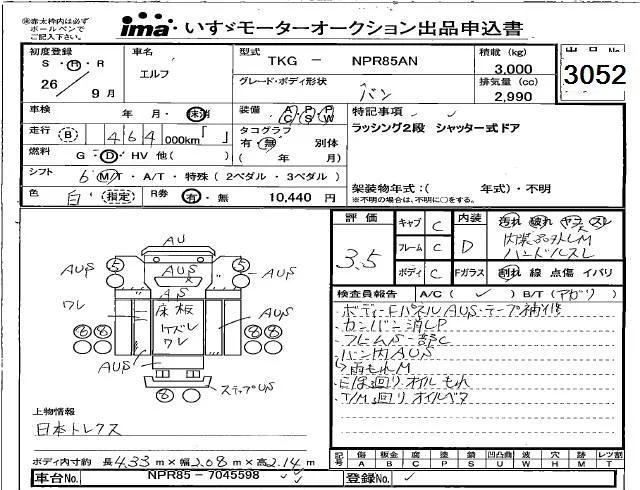 ※赤太枠内は必ず
ボールペンで
ご記入下さい。
ima いすゞモーターオークション出品申込書
初度登録
S・H・R
26年 9月
車名
エルフ
型式
TKG - NPR85AN
グレード・ボディ形状
バン
積載 (kg)
3,000
排気量 (cc)
2,990
出品No
3052
車検
年 月・未消
走行 (B) 464 000km「 」
燃料
G・D・HV 他( )
シフト
6 M/T・A/T・特殊 ( 2ペダル・3ペダル )
色
白 (指定)
R券
有・無 10,440 円
装備
AC PS PW
タコグラフ
有・無 別体
( 年 月)
特記事項
ラッシング2段 シャッター式ドア
架装物年式:( 年式)・不明
※不明の場合は、不明に○をする。
評価
3.5
キャブ C
フレーム C
ボディ C
内装 D
Fガラス
汚れ 破れ ヤケ スレ
内装品外しM
ハンドルスレ
割れ 線 点傷 イバリ
検査員報告 A/C( ✓ ) B/T(アガリ)
・ボディーFパネルAUS・テープ補修
・カンバン消しP
・フレームS一部C
・バン内AUS
↳雨もれM
・E/g廻りオイルもれ
・T/M廻りオイルベタ
AU
AUS
AUS
AUS
AS
5
5
ワレ
床板
ケズレ
ワレ
AUS
8 8
8 8
AUS
8
ステップUS
上物情報
日本トレクス
ボディ内寸約 長4.33m×幅2.08m×高2.14m
記号
傷 A
板金 B
腐 C
塗 P
錆 S
凹凸曲 U
波 W
穴 H
跡 M
レツ割 T
車台No. NPR85 - 7045598
登録No.